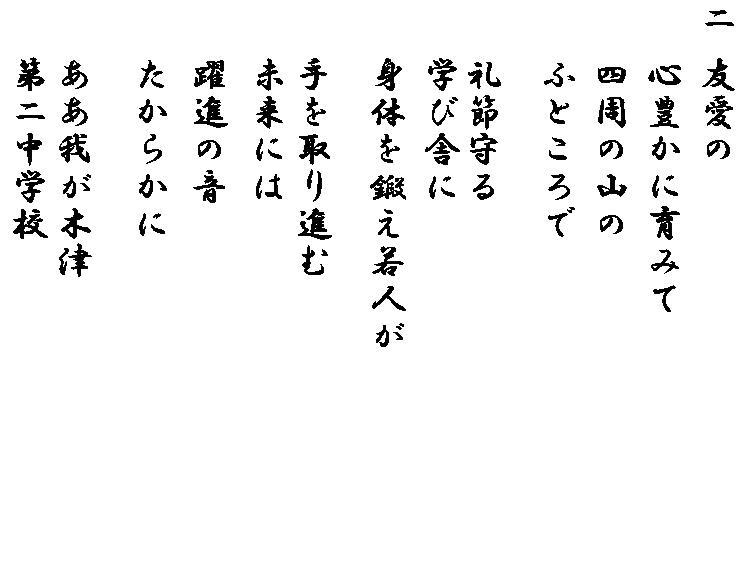 二 友愛の
心豊かに育みて
四周の山の
ふところで
礼節守る
学び舎に
身体を鍛え若人が
手を取り進む
未来には
躍進の音
たからかに
ああ我が木津
第二中学校